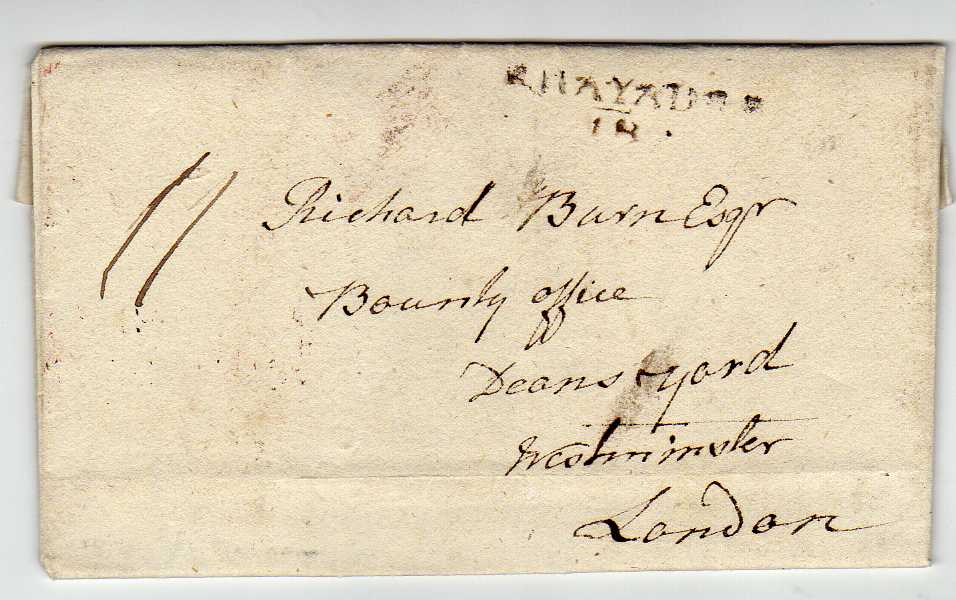 RHAYADER
18.
11
Richard Burn Esqr
Bounty office
Deans yard
Westminster
London